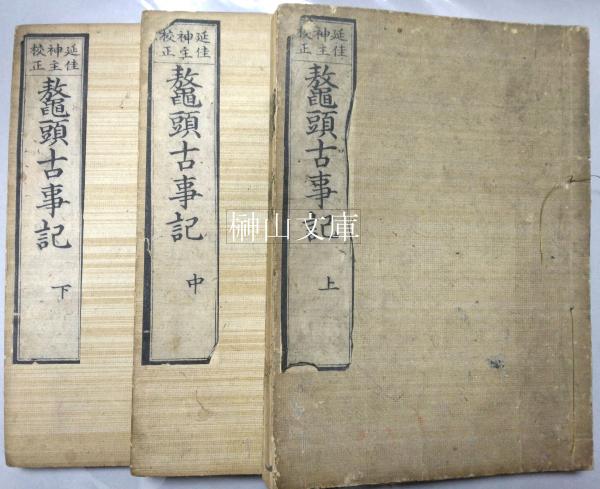 延佳
神主
校正
鼇頭古事記
上
延佳
神主
校正
鼇頭古事記
中
延佳
神主
校正
鼇頭古事記
下
榊山文庫